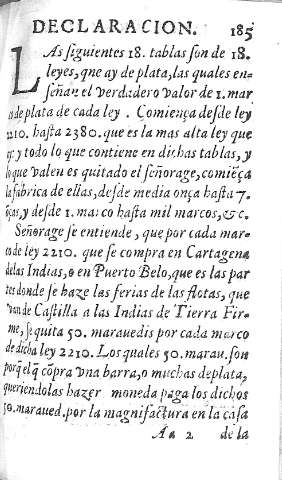 DECLARACION. 185
LAs siguientes 18. tablas son de 18.
leyes, que ay de plata, las quales en-
señan el verdadero valor de 1. mar
co de plata de cada ley. Comiença desde ley
2210. hasta 2380. que es la mas alta ley que
ay: y todo lo que contiene en dichas tablas, y
lo que valen es quitado el señorage, comiẽça
la fabrica de ellas, desde media onça hasta 7.
oças, y desde 1. marco hasta mil marcos, &c.
Señorage se entiende, que por cada mar-
co de ley 2210. que se compra en Cartagena
de las Indias, o en Puerto Belo, que es las par
tes donde se haze las ferias de las flotas, que
van de Castilla a las Indias de Tierra Fir-
me, se quita 50. marauedis por cada marco
de dicha ley 2210. Los quales 50. marau. son
porq̃ el q̃ cõpra vna barra, o muchas de plata,
queriendolas hazer moneda paga los dichos
50. maraued. por la magnifactura en la casa
Aa 2 de la